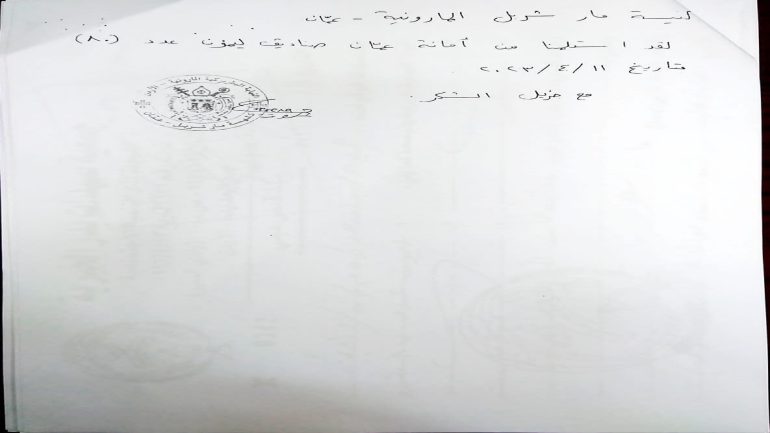 كنيسة مار شربل المارونية - عمّان
لقد استلمنا من أمانة عمّان صناديق ليمون عدد (٨٠)
بتاريخ ٢٠٢٣/٤/١١
مع جزيل الشكر.